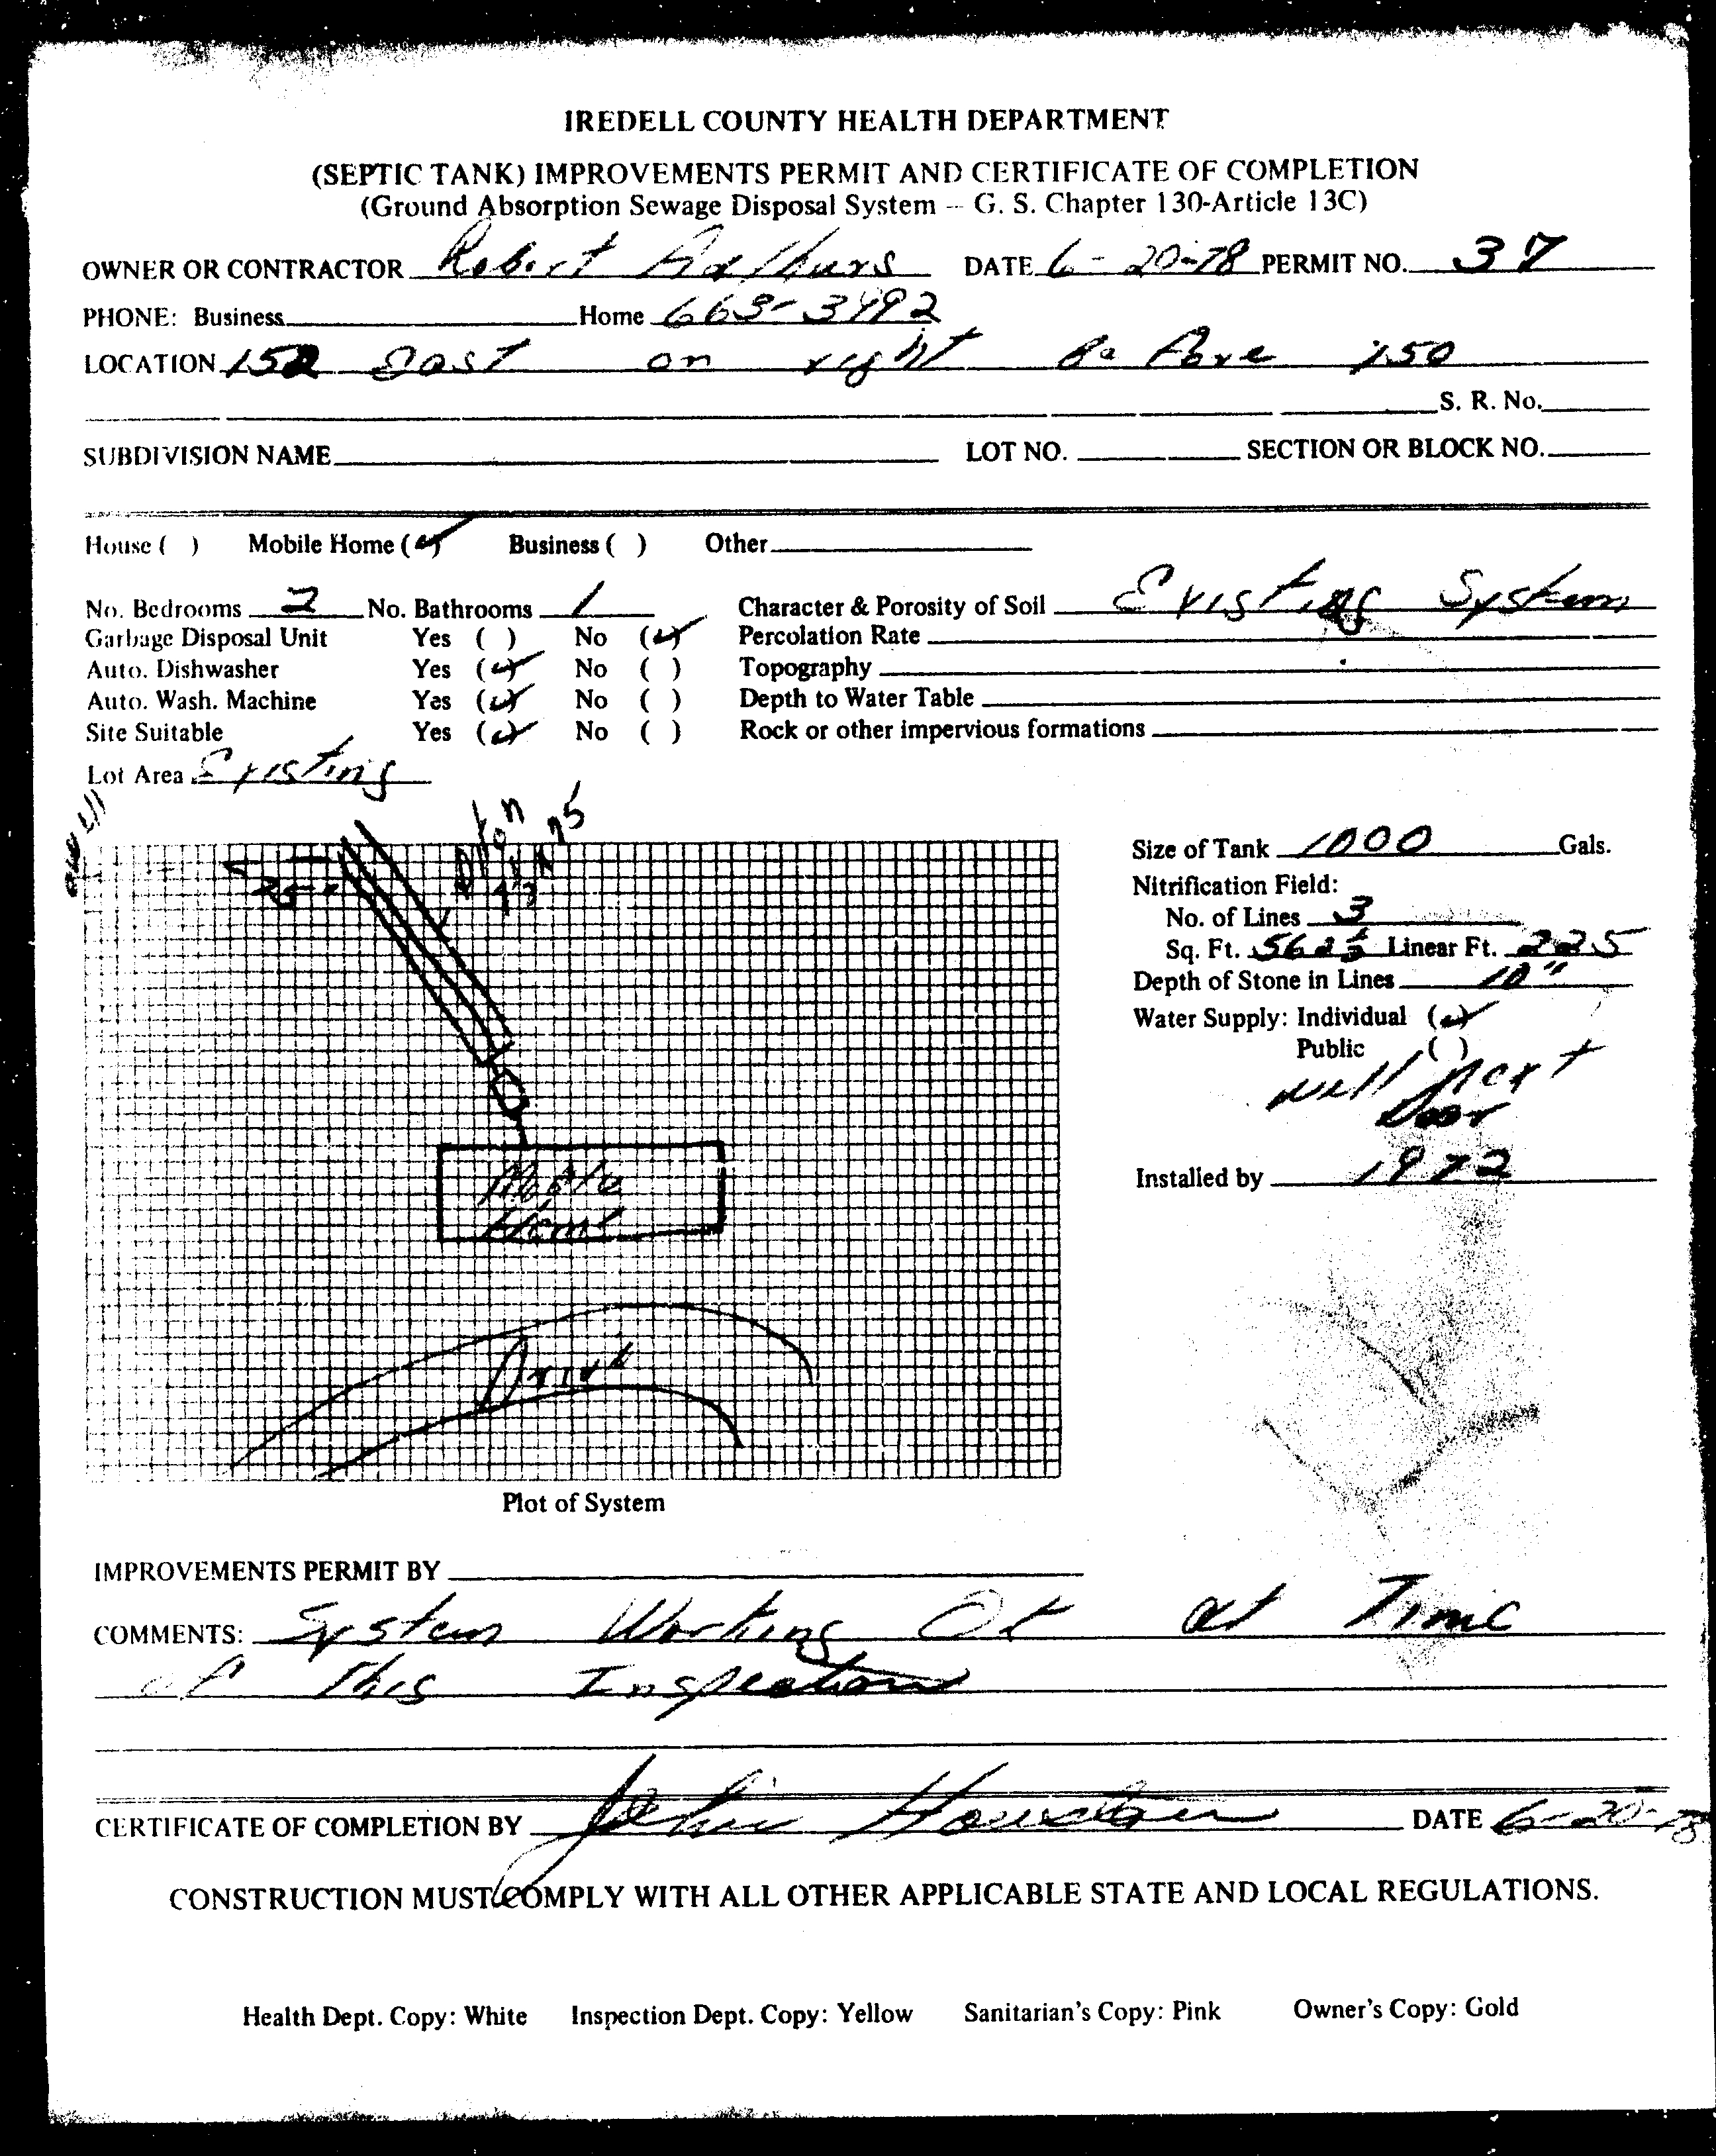 IREDELL COUNTY HEALTH DEPARTMENT
(SEPTIC TANK) IMPROVEMENTS PERMIT AND CERTIFICATE OF COMPLETION
(Ground Absorption Sewage Disposal System – G. S. Chapter 130-Article 13C)
OWNER OR CONTRACTOR Robert DATE 6-20-78 PERMIT NO. 37
PHONE: Business Home 663-3492
LOCATION 152 East on right Before 150
S. R. No.
SUBDIVISION NAME LOT NO. SECTION OR BLOCK NO.
House ( ) Mobile Home (✓) Business ( ) Other
No. Bedrooms 2 No. Bathrooms 1 Character & Porosity of Soil Existing System
Garbage Disposal Unit Yes ( ) No (✓) Percolation Rate
Auto. Dishwasher Yes (✓) No ( ) Topography
Auto. Wash. Machine Yes (✓) No ( ) Depth to Water Table
Site Suitable Yes (✓) No ( ) Rock or other impervious formations
Lot Area Existing
well
75
Size of Tank 1000 Gals.
Nitrification Field:
No. of Lines 3
Sq. Ft. 562½ Linear Ft. 225
Depth of Stone in Lines 10"
Water Supply: Individual (✓)
Public ( )
well next
Door
Installed by 1972
Mobile
Home
Drive
Plot of System
IMPROVEMENTS PERMIT BY
COMMENTS: System Working Ok at Time
of This Inspection
CERTIFICATE OF COMPLETION BY Houston DATE 6-20-78
CONSTRUCTION MUST COMPLY WITH ALL OTHER APPLICABLE STATE AND LOCAL REGULATIONS.
Health Dept. Copy: White Inspection Dept. Copy: Yellow Sanitarian's Copy: Pink Owner's Copy: Gold